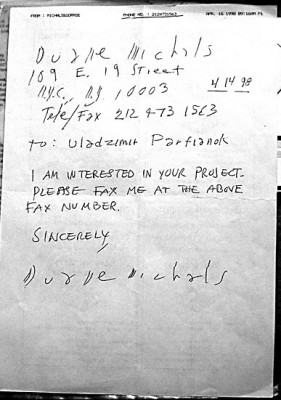 FROM : MICHALSGORREE PHONE NO. : 2124731563 APR. 16 1998 09:16AM P1
Duane Michals
109 E. 19 Street
N.Y.C. N.Y 10003 4/14 98
Tele/Fax 212 473 1563
to: Uladzimir Parfianok
I AM INTERESTED IN YOUR PROJECT.
PLEASE FAX ME AT THE ABOVE
FAX NUMBER.
SINCERELY,
Duane Michals